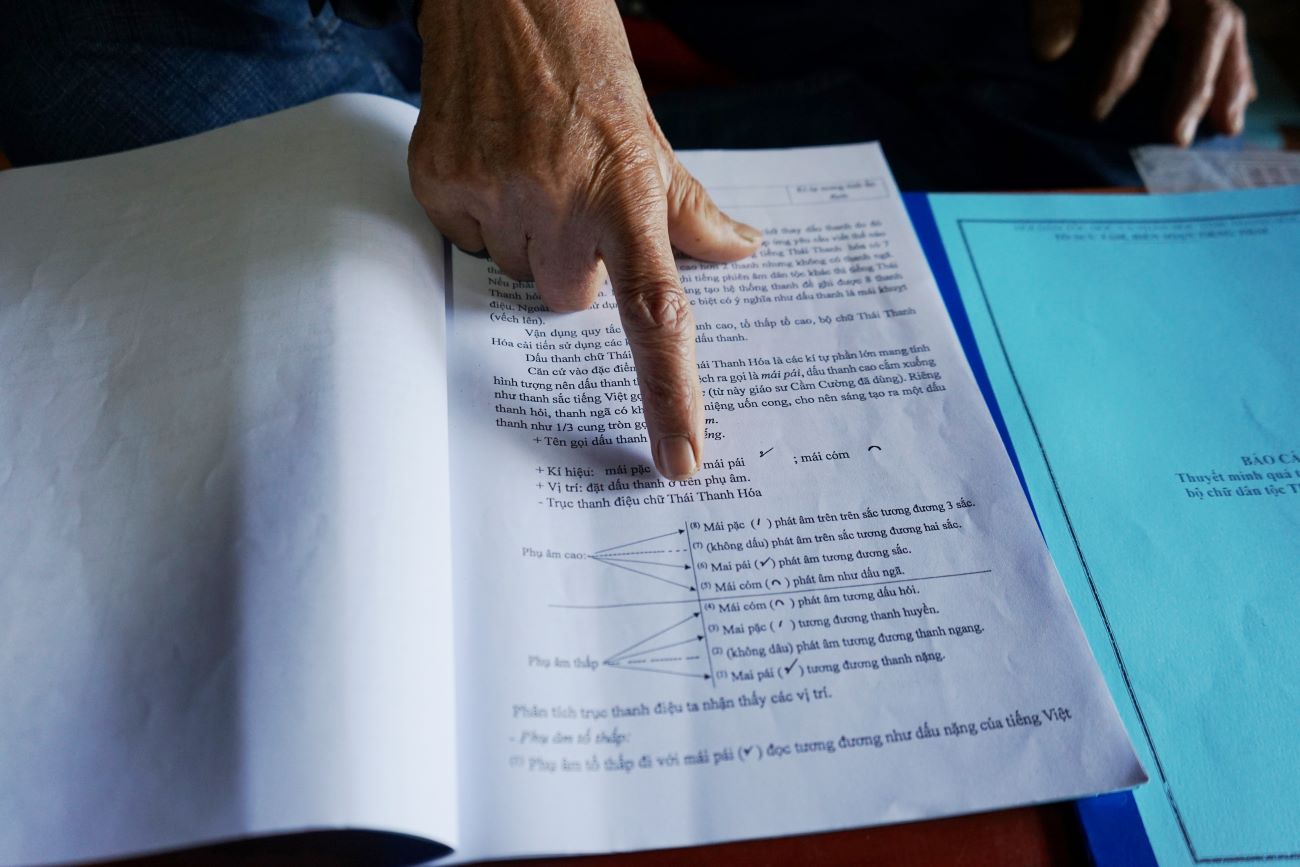 thay dấu thanh do đó
ứng yêu cầu viết thế nào
tiếng Thái Thanh Hóa có 7
cao hơn 2 thanh nhưng không có thanh ngã.
Nếu phải ghi tiếng phiên âm dân tộc khác thì tiếng Thái
Thanh tạo hệ thống thanh để ghi được 8 thanh
điệu. Ngoài biệt có ý nghĩa như dấu thanh là mái khuyt
(vếch lên).
Vận dụng quy tắc cao, tổ thấp tổ cao, bộ chữ Thái Thanh
Hóa cải tiến sử dụng các dấu thanh.
Dấu thanh chữ Thái
Căn cứ vào đặc điểm Thái Thanh Hóa là các kí tự phần lớn mang tính
hình tượng nên dấu thanh ra gọi là mái pái, dấu thanh cao cắm xuống
như thanh sắc tiếng Việt (từ này giáo sư Cầm Cường đã dùng). Riêng
thanh hỏi, thanh ngã có niệng uốn cong, cho nên sáng tạo ra một dấu
thanh như 1/3 cung tròn
+ Tên gọi dấu thanh
+ Kí hiệu: mái pặc mái pái ✓ ; mái cóm ⌒
+ Vị trí: đặt dấu thanh ở trên phụ âm.
- Trục thanh điệu chữ Thái Thanh Hóa
Phụ âm cao:
(8) Mái pặc ( ′ ) phát âm trên trên sắc tương đương 3 sắc.
(7) (không dấu) phát âm trên sắc tương đương hai sắc.
(6) Mai pái (✓) phát âm tương đương sắc.
(5) Mái cóm (⌒) phát âm như dấu ngã.
Phụ âm thấp
(4) Mái cóm (⌒ ) phát âm tương dấu hỏi.
(3) Mai pặc ( ′ ) tương đương thanh huyền.
(2) (không dâu) phát âm tương đương thanh ngang.
(1) Mai pái (✓) tương đương thanh nặng.
Phân tích trục thanh điệu ta nhận thấy các vị trí.
- Phụ âm tổ thấp:
(1) Phụ âm tổ thấp đi với mái pái (✓) đọc tương đương như dấu nặng của tiếng Việt
BÁO CÁ
Thuyết minh quá t
bộ chữ dân tộc T